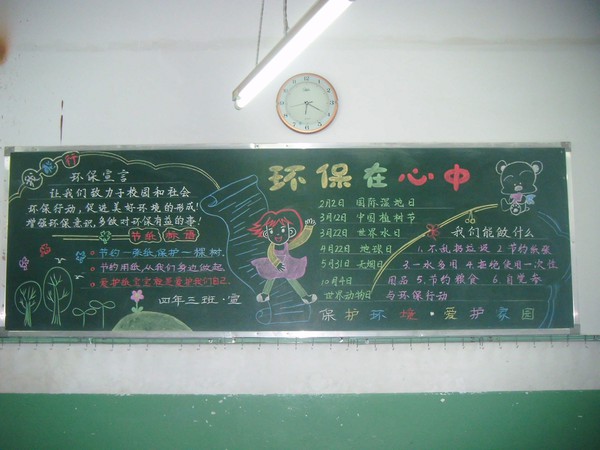 环保行
环保宣言
让我们致力于校园和社会
环保行动,促进美好环境的形成!
增强环保意识,多做对环保有益的事!
节纸 标语
节约一张纸保护一棵树.
节约用纸,从我们身边做起
爱护纸宝宝就是爱护我们自己.
四年三班·宣
环保在心中
2月2日 国际湿地日
3月12日 中国植树节
3月22日 世界水日
4月22日 地球日
5月31日 无烟日
10月4日
世界动物日
我们能做什么
1.不乱扔垃圾 2.节约纸张
3.一水多用 4.拒绝使用一次性
用品 5.节约粮食 6.自觉参
与环保行动
保护环境·爱护家园